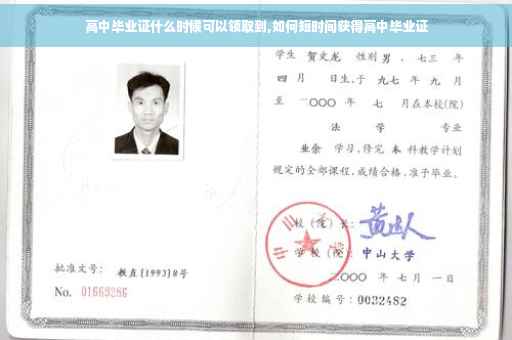 高中毕业证什么时候可以领取到,如何短时间获得高中毕业证
学生 贺文龙 性别 男 、七三 年
四 月 日生,于 九七 年 九 月
至 二〇〇〇 年 七 月在本校(院)
法 学 专业
业余 学习,修完 本 科教学计划
规定的全部课程,成绩合格,准予毕业。
校 (院) 长:
学 校 (院): 中山大学
二〇〇〇 年 七 月 一 日
批准文号: 教直[1993]8号
No. 01663286
学校编号: 0032482